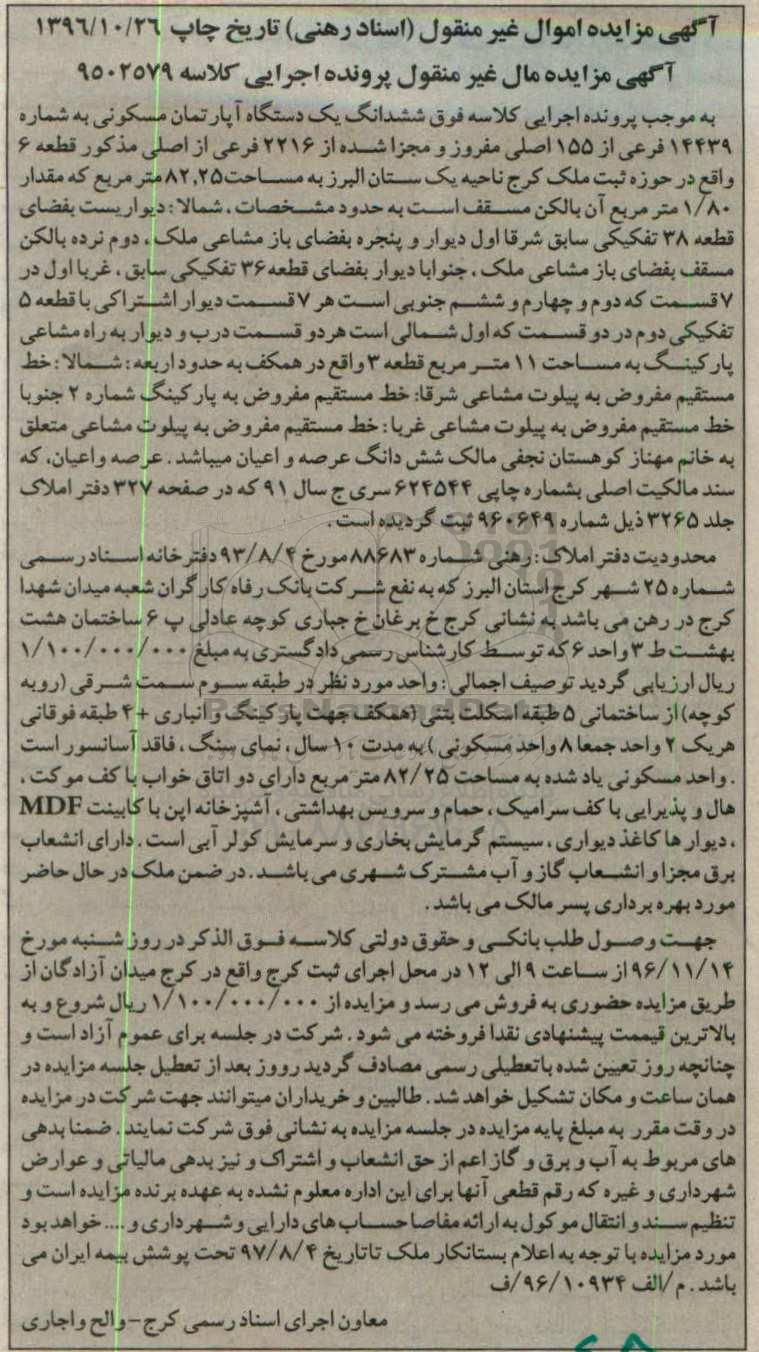 آگهی مزایده اموال غیر منقول (اسناد رهنی) تاریخ چاپ ۱۳۹۶/۱۰/۲۶
آگهی مزایده مال غیر منقول پرونده اجرایی کلاسه ۹۵۰۲۵۷۹
به موجب پرونده اجرایی کلاسه فوق ششدانگ یک دستگاه آپارتمان مسکونی به شماره
۱۴۴۳۹ فرعی از ۱۵۵ اصلی مفروز و مجزا شده از ۲۲۱۶ فرعی از اصلی مذکور قطعه ۶
واقع در حوزه ثبت ملک کرج ناحیه یک ستان البرز به مساحت ۸۲,۲۵ متر مربع که مقدار
۱/۸۰ متر مربع آن بالکن مسقف است به حدود مشخصات ، شمالا : دیواریست بفضای
قطعه ۳۸ تفکیکی سابق شرقا اول دیوار و پنجره بفضای باز مشاعی ملک ، دوم نرده بالکن
مسقف بفضای باز مشاعی ملک ، جنوابا دیوار بفضای قطعه ۳۶ تفکیکی سابق ، غربا اول در
۷ قسمت که دوم و چهارم و ششم جنوبی است هر ۷ قسمت دیوار اشتراکی با قطعه ۵
تفکیکی دوم در دو قسمت که اول شمالی است هر دو قسمت درب و دیوار به راه مشاعی
پارکینگ به مساحت ۱۱ متر مربع قطعه ۳ واقع در همکف به حدود اربعه : شمالا : خط
مستقیم مفروض به پیلوت مشاعی شرقا: خط مستقیم مفروض به پارکینگ شماره ۲ جنوبا
خط مستقیم مفروض به پیلوت مشاعی غربا : خط مستقیم مفروض به پیلوت مشاعی متعلق
به خانم مهناز کوهستان نجفی مالک شش دانگ عرصه و اعیان میباشد . عرصه واعیان، که
سند مالکیت اصلی بشماره چاپی ۶۲۴۵۴۴ سری ج سال ۹۱ که در صفحه ۳۲۷ دفتر املاک
جلد ۳۲۶۵ ذیل شماره ۹۶۰۶۴۹ ثبت گردیده است .
محدودیت دفتر املاک : رهنی شماره ۸۸۶۸۳ مورخ ۹۳/۸/۴ دفترخانه اسناد رسمی
شماره ۲۵ شهر کرج استان البرز که به نفع شرکت بانک رفاه کارگران شعبه میدان شهدا
کرج در رهن می باشد به نشانی کرج خ برغان خ جباری کوچه عادلی پ ۶ ساختمان هشت
بهشت ط ۳ واحد ۶ که توسط کارشناس رسمی دادگستری به مبلغ ۱/۱۰۰/۰۰۰/۰۰۰
ریال ارزیابی گردید توصیف اجمالی : واحد مورد نظر در طبقه سوم سمت شرقی (روبه
کوچه) از ساختمانی ۵ طبقه اسکلت بتنی (همکف جهت پارکینگ و انباری + ۴ طبقه فوقانی
هریک ۲ واحد جمعا ۸ واحد مسکونی ) به مدت ۱۰ سال ، نمای سنگ ، فاقد آسانسور است
. واحد مسکونی یاد شده به مساحت ۸۲/۲۵ متر مربع دارای دو اتاق خواب با کف موکت ،
هال و پذیرایی با کف سرامیک ، حمام و سرویس بهداشتی ، آشپزخانه اپن با کابینت MDF
، دیوار ها کاغذ دیواری ، سیستم گرمایش بخاری و سرمایش کولر آبی است . دارای انشعاب
برق مجزا و انشعاب گاز و آب مشترک شهری می باشد . در ضمن ملک در حال حاضر
مورد بهره برداری پسر مالک می باشد .
جهت وصول طلب بانکی و حقوق دولتی کلاسه فوق الذکر در روز شنبه مورخ
۹۶/۱۱/۱۴ از ساعت ۹ الی ۱۲ در محل اجرای ثبت کرج واقع در کرج میدان آزادگان از
طریق مزایده حضوری به فروش می رسد و مزایده از ۱/۱۰۰/۰۰۰/۰۰۰ ریال شروع و به
بالاترین قیممت پیشنهادی نقدا فروخته می شود . شرکت در جلسه برای عموم آزاد است و
چنانچه روز تعیین شده باتعطیلی رسمی مصادف گردید رووز بعد از تعطیل جلسه مزایده در
همان ساعت و مکان تشکیل خواهد شد . طالبین و خریداران میتوانند جهت شرکت در مزایده
در وقت مقرر به مبلغ پایه مزایده در جلسه مزایده به نشانی فوق شرکت نمایند . ضمنا بدهی
های مربوط به آب و برق و گاز اعم از حق انشعاب و اشتراک و نیز بدهی مالیاتی و عوارض
شهرداری و غیره که رقم قطعی آنها برای این اداره معلوم نشده به عهده برنده مزایده است و
تنظیم سند و انتقال موکول به ارائه مفاصا حساب های دارایی و شهرداری و .... خواهد بود
مورد مزایده با توجه به اعلام بستانکار ملک تاتاریخ ۹۷/۸/۴ تحت پوشش بیمه ایران می
باشد . م/الف ۹۶/۱۰۹۳۴/ف
معاون اجرای اسناد رسمی کرج - والح واجاری